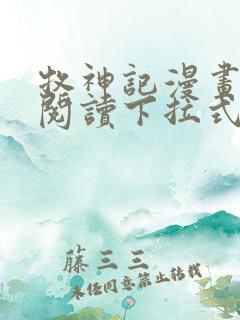 牧神記漫畫
閱讀下拉式
藤三三
未經同意禁止轉載